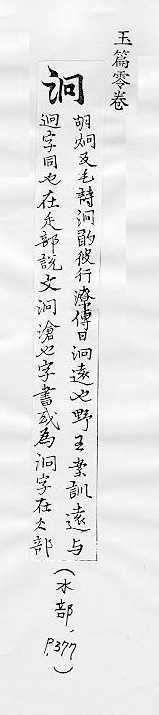 玉篇零卷
泂
胡炯反毛詩泂酌彼行潦傳曰泂遠也野王案訓遠与
迥字同也在辵部說文泂滄也字書或為泂字在冫部
(水部．P.377)